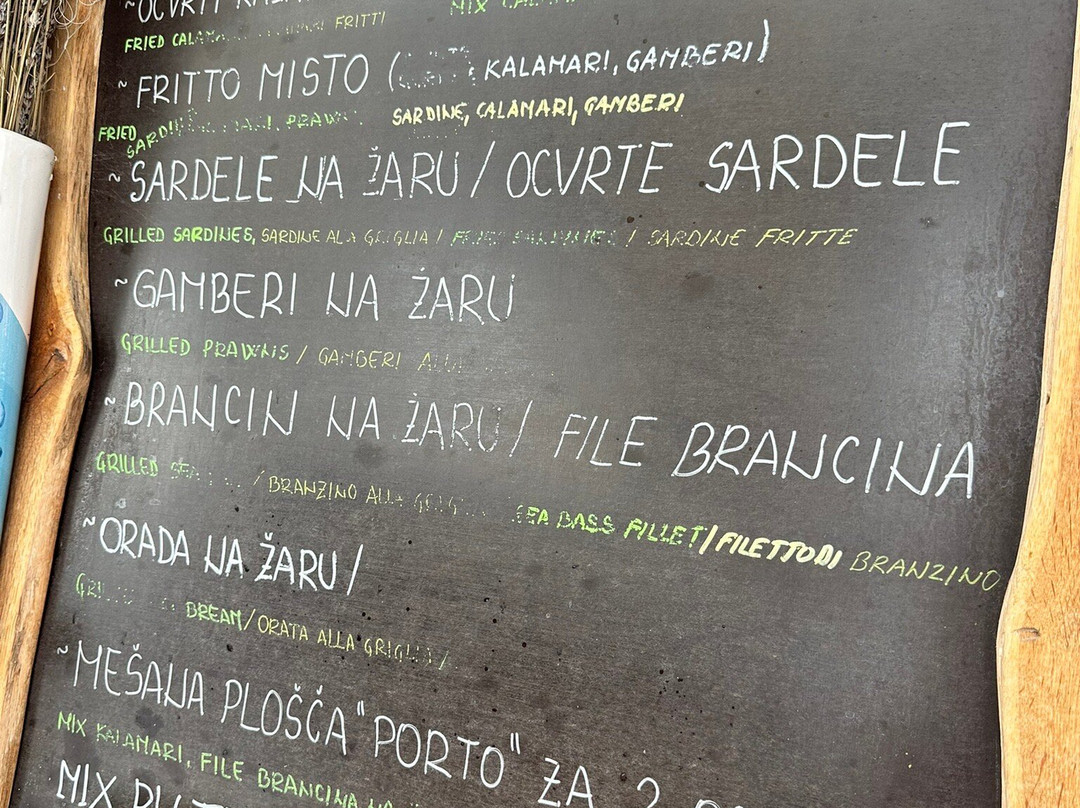 ~OCVRTI
FRIED FRITTI MIX
~FRITTO MISTO ( KALAMARI, GAMBERI)
FRIED SARDINE, CALAMARI, GAMBERI
~SARDELE NA ŽARU / OCVRTE SARDELE
GRILLED SARDINES, SARDINE ALA GRIGLIA / FRIED SARDINES / SARDINE FRITTE
~GAMBERI NA ŽARU
GRILLED PRAWNS / GAMBERI
~BRANCIN NA ŽARU / FILE BRANCINA
GRILLED / BRANZINO ALLA SEA BASS FILLET/FILETTO DI BRANZINO
~ORADA NA ŽARU /
BREAM/ORATA ALLA GRIGLIA /
~MEŠANA PLOŠČA "PORTO" ZA 2
MIX KALAMARI, FILE BRANCINA NA
MIX